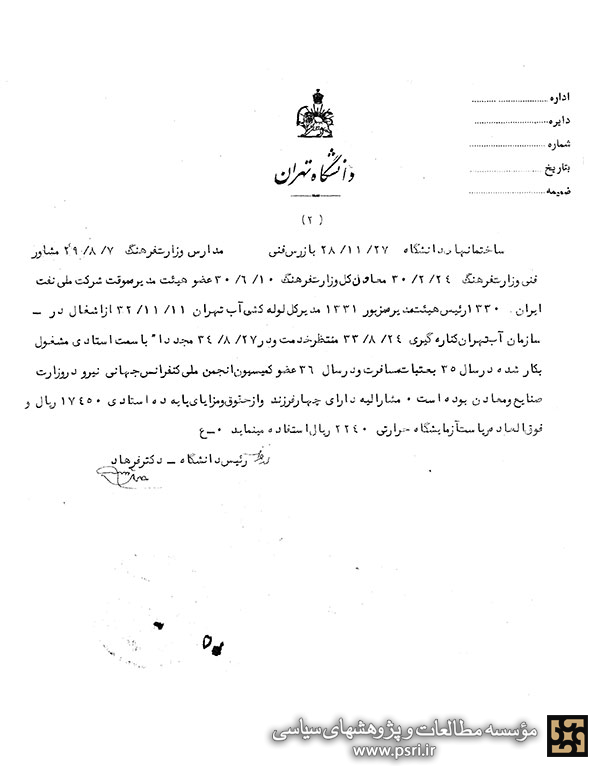 اداره ............................
دایره ............................
شماره ............................
بتاریخ ............................
ضمیمه ............................
دانشگاه تهران
(۲)
ساختمانهای دانشگاه ۲۸/۱۱/۲۷ بازرس فنی مدارس وزارت فرهنگ ۲۹/۸/۷ مشاور
فنی وزارت فرهنگ ۳۰/۲/۲۴ معاون کل وزارت فرهنگ ۳۰/۶/۱۰ عضو هیئت مدیر موقت شرکت ملی نفت
ایران ۰ ۱۳۳۰ رئیس هیئت مدیر مزبور ۱۳۳۱ مدیر کل لوله کشی آب تهران ۳۲/۱۱/۱۱ از اشغال در –
سازمان آب تهران کناره گیری ۳۳/۸/۲۴ منتظر خدمت و در ۳۴/۸/۲۷ مجددا" با سمت استادی مشغول
بکار شده در سال ۳۵ بعتبات مسافرت و در سال ۳۶ عضو کمیسیون انجمن ملی کنفرانس جهانی نیرو در وزارت
صنایع و معادن بوده است ۰ مشارالیه دارای چهار فرزند و از حقوق و مزایای پایه ده استادی ۱۷۴۵۰ ریال و
فوق العاده ریاست آزمایشگاه حرارتی ۲۲۴۰ ریال استفاده مینماید ۰ – ع
رئیس دانشگاه – دکتر فرهاد
مؤسسه مطالعات و پژوهشهای سیاسی
www.psri.ir